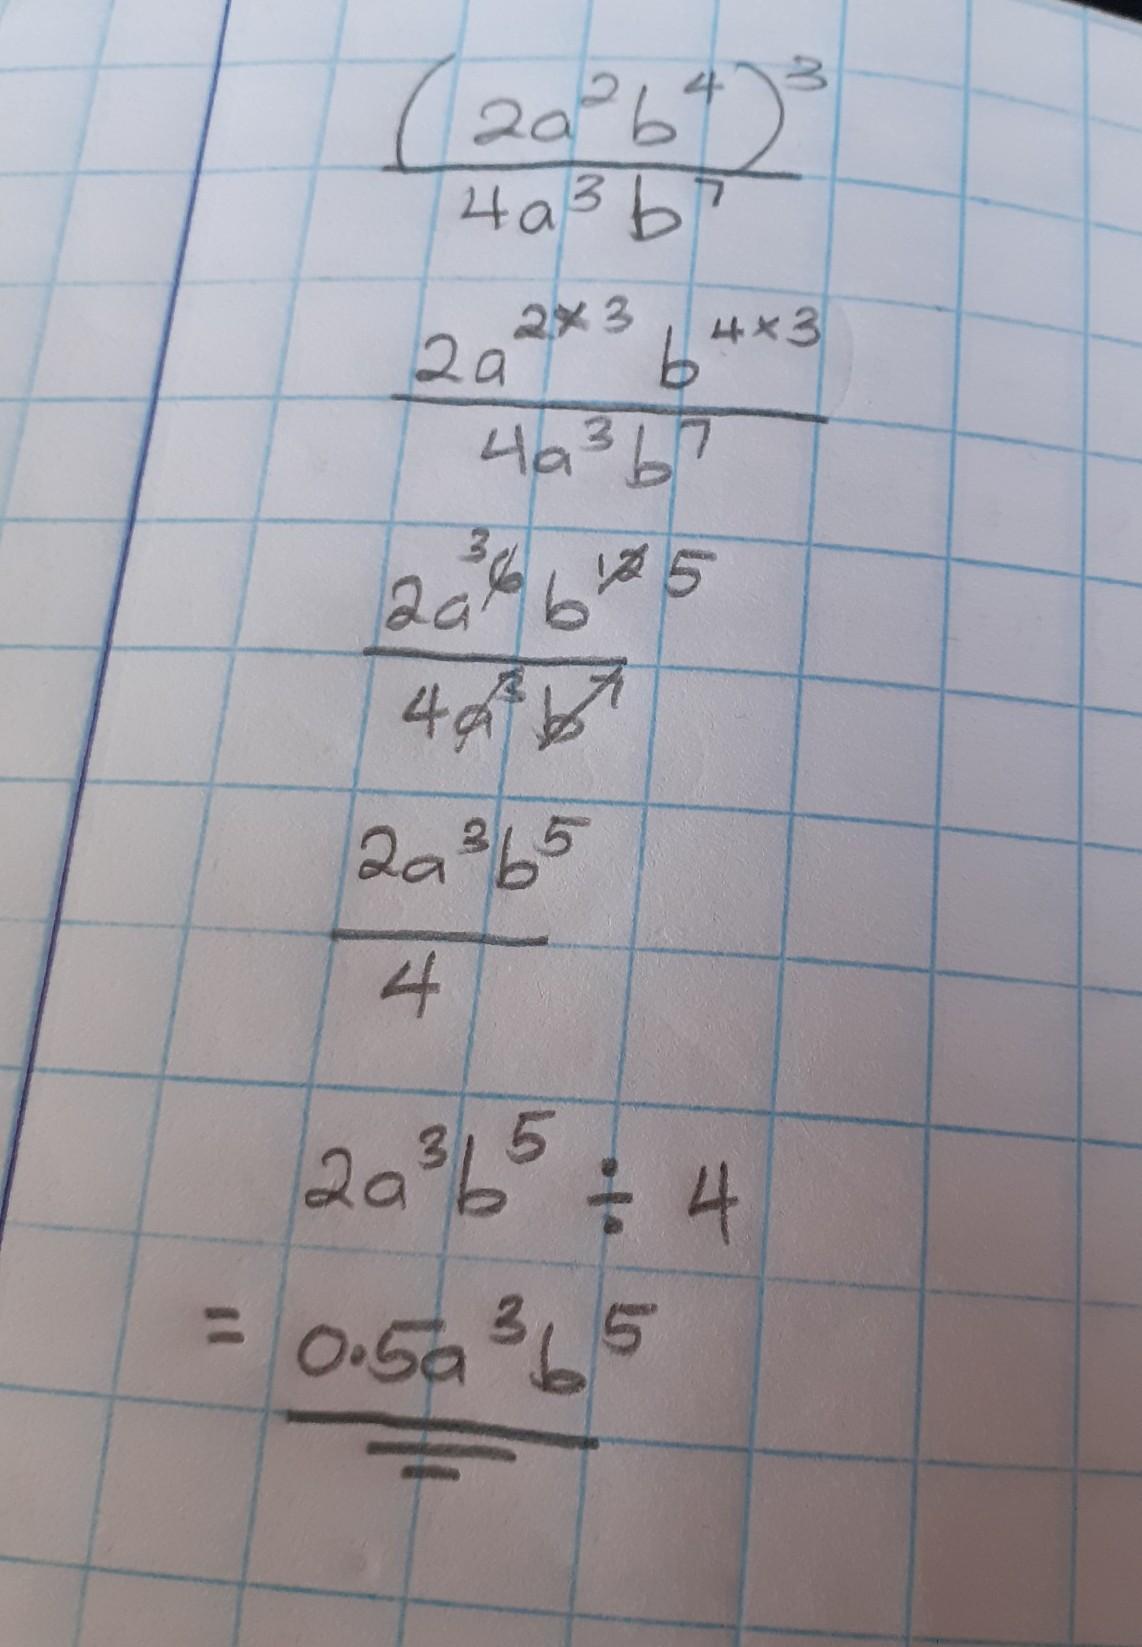 (2a²b⁴)³
4a³b⁷
2a²ˣ³ b⁴ˣ³
4a³b⁷
2a³6 b¹² 5
4a³b⁷
2a³b⁵
4
2a³b⁵ ÷ 4
= 0.5a³b⁵